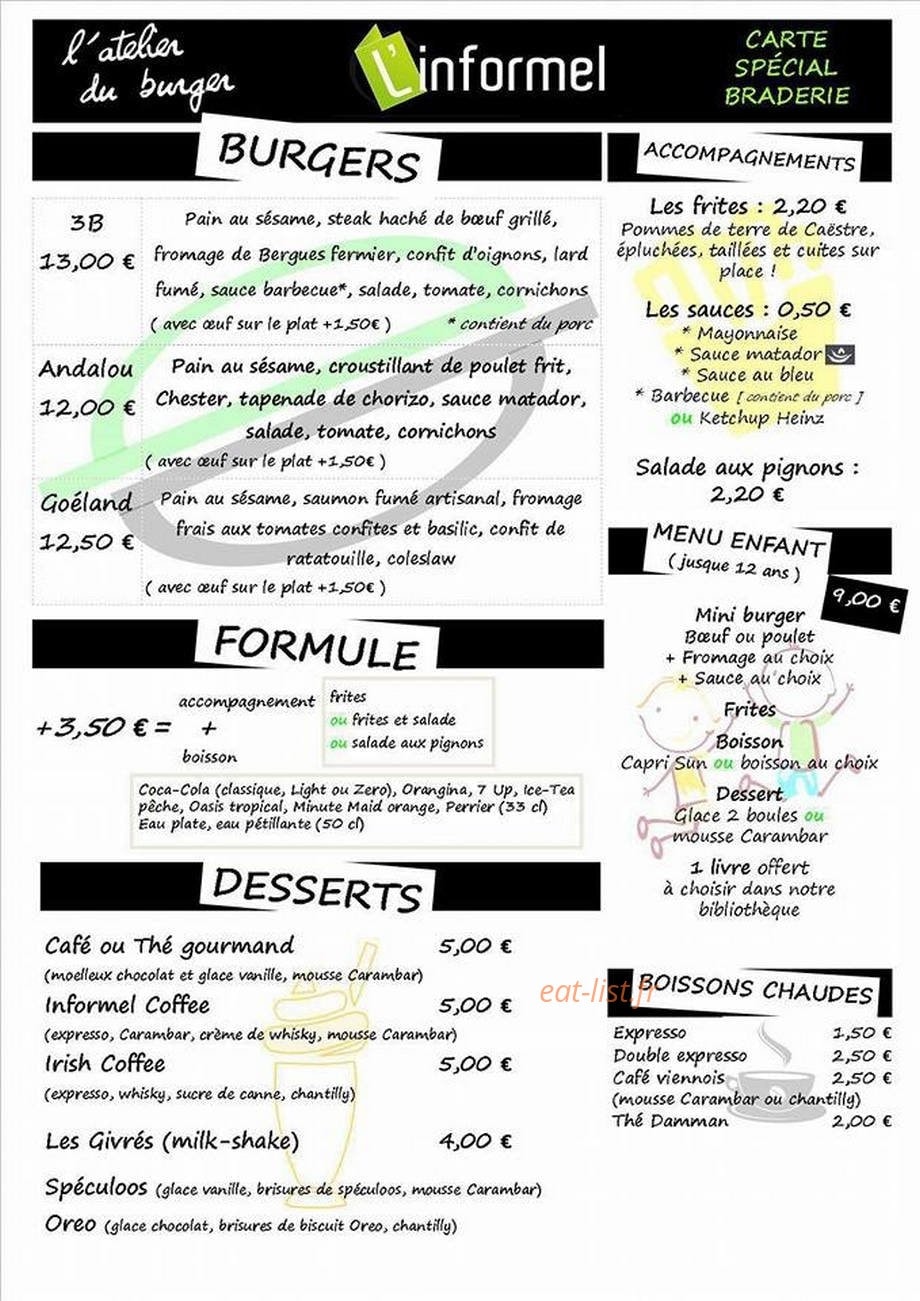 l'atelier
du burger
L'informel
CARTE
SPÉCIAL
BRADERIE
BURGERS
3B
13,00 €
Pain au sésame, steak haché de bœuf grillé,
fromage de Bergues fermier, confit d'oignons, lard
fumé, sauce barbecue*, salade, tomate, cornichons
( avec œuf sur le plat +1,50€ )
* contient du porc
Andalou
12,00 €
Pain au sésame, croustillant de poulet frit,
Chester, tapenade de chorizo, sauce matador,
salade, tomate, cornichons
( avec œuf sur le plat +1,50€ )
Goéland
12,50 €
Pain au sésame, saumon fumé artisanal, fromage
frais aux tomates confites et basilic, confit de
ratatouille, coleslaw
( avec œuf sur le plat +1,50€ )
FORMULE
+3,50 € =
accompagnement
+
boisson
frites
ou frites et salade
ou salade aux pignons
Coca-Cola (classique, Light ou Zero), Orangina, 7 Up, Ice-Tea
pêche, Oasis tropical, Minute Maid orange, Perrier (33 cl)
Eau plate, eau pétillante (50 cl)
DESSERTS
Café ou Thé gourmand 5,00 €
(moelleux chocolat et glace vanille, mousse Carambar)
Informel Coffee 5,00 €
(expresso, Carambar, crème de whisky, mousse Carambar)
Irish Coffee 5,00 €
(expresso, whisky, sucre de canne, chantilly)
Les Givrés (milk-shake) 4,00 €
Spéculoos (glace vanille, brisures de spéculoos, mousse Carambar)
Oreo (glace chocolat, brisures de biscuit Oreo, chantilly)
ACCOMPAGNEMENTS
Les frites : 2,20 €
Pommes de terre de Caëstre,
épluchées, taillées et cuites sur
place !
Les sauces : 0,50 €
* Mayonnaise
* Sauce matador
* Sauce au bleu
* Barbecue [ contient du porc ]
ou Ketchup Heinz
Salade aux pignons :
2,20 €
MENU ENFANT
( jusque 12 ans )
9,00 €
Mini burger
Bœuf ou poulet
+ Fromage au choix
+ Sauce au choix
Frites
Boisson
Capri Sun ou boisson au choix
Dessert
Glace 2 boules ou
mousse Carambar
1 livre offert
à choisir dans notre
bibliothèque
eat-list.fr
BOISSONS CHAUDES
Expresso 1,50 €
Double expresso 2,50 €
Café viennois 2,50 €
(mousse Carambar ou chantilly)
Thé Damman 2,00 €